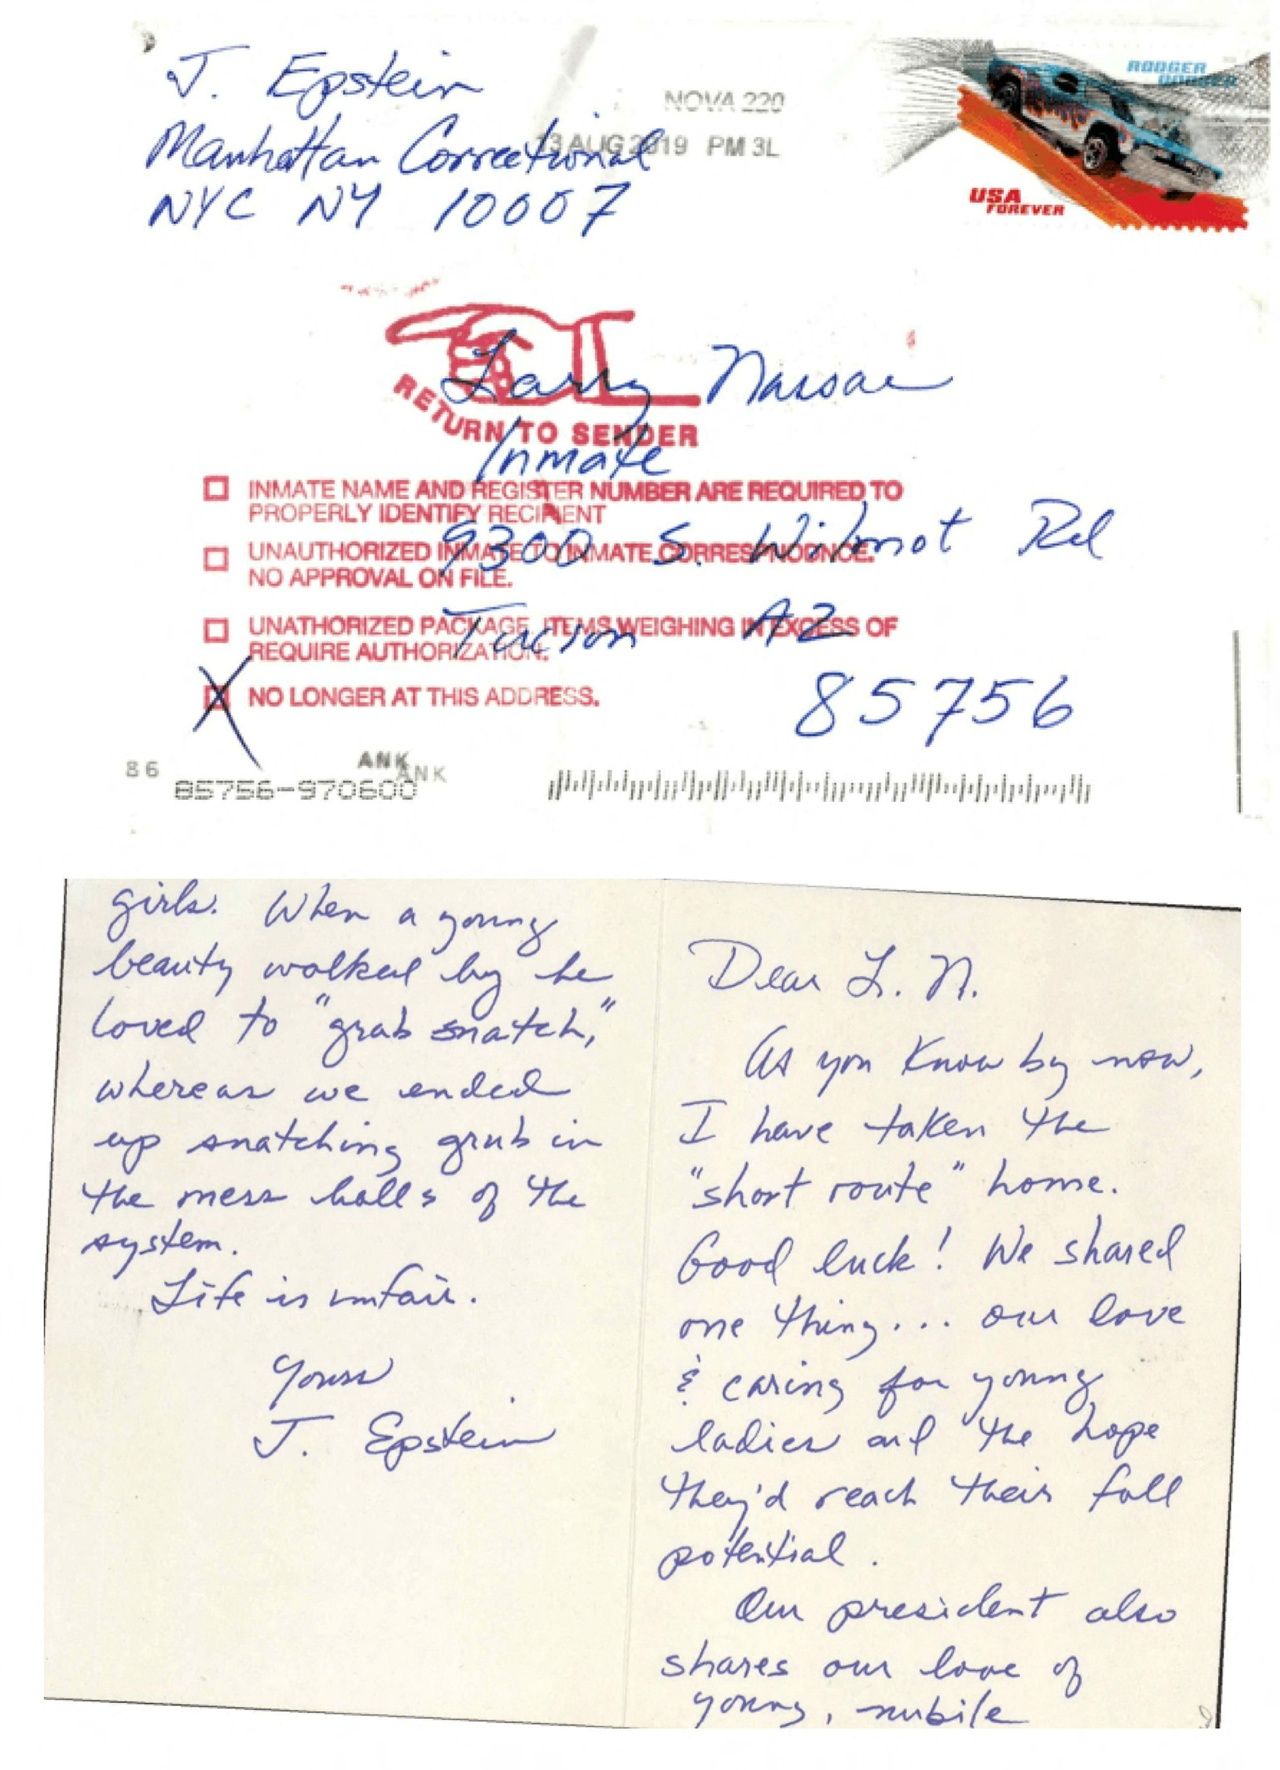 J. Epstein
Manhattan Correctional
NYC NY 10007
NOVA 220
13 AUG 2019 PM 3L
RODGER DODGER
USA
FOREVER
RETURN TO SENDER
Larry Nassar
Inmate
9300 S. Wilmot Rd
Tucson AZ
85756
INMATE NAME AND REGISTER NUMBER ARE REQUIRED TO
PROPERLY IDENTIFY RECIPIENT
UNAUTHORIZED INMATE TO INMATE CORRESPNODNCE.
NO APPROVAL ON FILE.
UNATHORIZED PACKAGE, ITEMS WEIGHING IN EXCESS OF
REQUIRE AUTHORIZATION.
X NO LONGER AT THIS ADDRESS.
86
ANK
ANK
85756-970600
Dear L. N.
As you know by now,
I have taken the
"short route" home.
Good luck! We shared
one thing... our love
& caring for young
ladies and the hope
they'd reach their full
potential.
Our president also
shares our love of
young, nubile
girls. When a young
beauty walked by he
loved to "grab snatch,"
whereas we ended
up snatching grub in
the mess halls of the
system.
Life is unfair.
Yours
J. Epstein